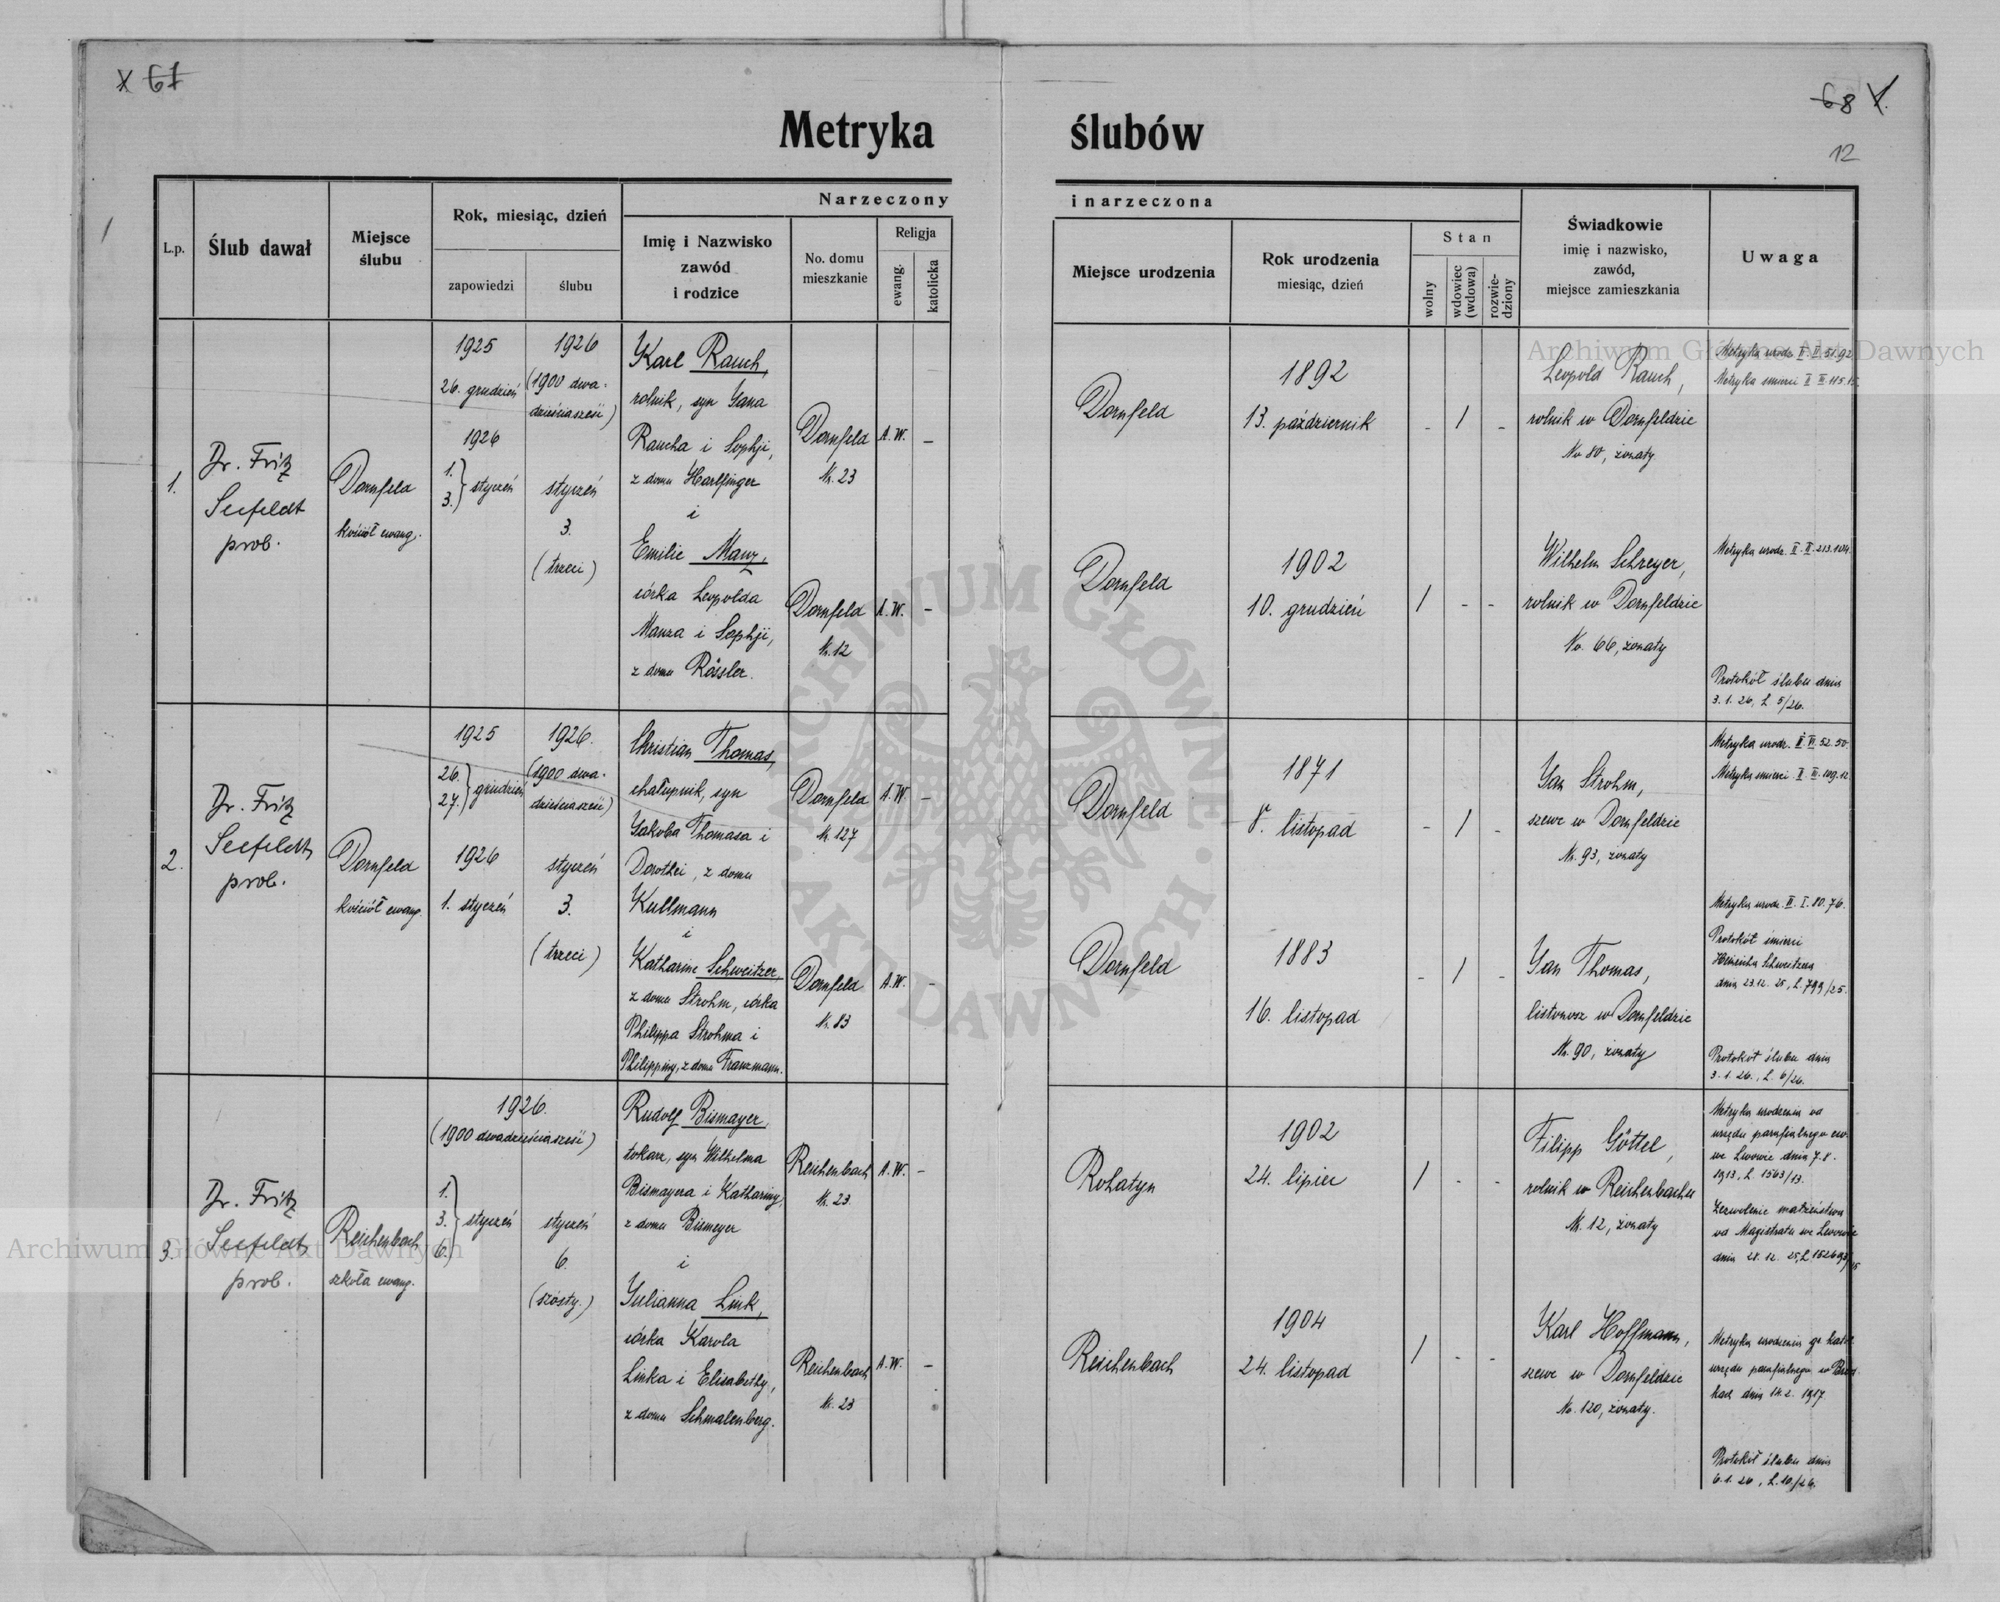 x 67
68 x.
12
Metryka ślubów
L.p.
Ślub dawał
Miejsce ślubu
Rok, miesiąc, dzień
zapowiedzi
ślubu
Narzeczony i narzeczona
Imię i Nazwisko
zawód
i rodzice
No. domu
mieszkanie
Religja
ewang.
katolicka
Miejsce urodzenia
Rok urodzenia
miesiąc, dzień
Stan
wolny
wdowiec
(wdowa)
rozwie-
dziony
Świadkowie
imię i nazwisko,
zawód,
miejsce zamieszkania
Uwaga
1.
Dr. Fritz
Seefeldt
prob.
Dornfeld
kościół ewang.
1925
26. grudzień
1926
1.
3. } styczeń
1926
(1900 dwa-
dzieścia sześć)
styczeń
3.
(trzeci)
Karl Rauch,
rolnik, syn Jana
Raucha i Sophji,
z domu Hartfinger
i
Emilie Manz,
córka Leopolda
Manza i Sophji,
z domu Rössler.
Dornfeld
Nr. 23
A.W. –
Dornfeld
Nr. 12
A.W. –
Dornfeld
1892
13. październik
- 1 -
Dornfeld
1902
10. grudzień
1 - -
Leopold Rauch,
rolnik w Dornfeldzie
No 80, żonaty
Wilhelm Schreyer,
rolnik w Dornfeldzie
No. 66, żonaty
Metryka urodz. II. II. 51.92
Metryka śmierci II III 115.15.
Metryka urodz. II. II. 213.104.
Protokół ślubu dnia
3.1.26, L 5/26.
2.
Dr. Fritz
Seefeldt
prob.
Dornfeld
kościół ewang.
1925
26.
27. } grudzień
1926
1. styczeń
1926.
(1900 dwa-
dzieścia sześć)
styczeń
3.
(trzeci)
Christian Thomas,
chałupnik, syn
Jakoba Thomasa i
Dorothei, z domu
Kullmann
i
Katharine Schweitzer,
z domu Strohm, córka
Philippa Strohma i
Philippiny, z domu Franzmann.
Dornfeld
Nr. 127
A.W. –
Dornfeld
Nr. 83
A.W. -
Dornfeld
1871
8. listopad
- 1 -
Dornfeld
1883
16. listopad
- 1 -
Jan Strohm,
szewc w Dornfeldzie
Nr. 93, żonaty
Jan Thomas,
listonosz w Dornfeldzie
Nr. 90, żonaty
Metryka urodz. II. VI. 52.50
Metryka śmierci. II III. 109.12.
Metryka urodz. II. I. 80.76.
Protokół śmierci
Heinricha Schweitzera
dnia 23.12. 25, L. 799/25.
Protokół ślubu dnia
3.1.26., L. 6/26.
3.
Dr. Fritz
Seefeldt
prob.
Reichenbach
szkoła ewang.
1926.
(1900 dwadzieścia sześć)
1.
3.
6. } styczeń
styczeń
6.
(szósty.)
Rudolf Bismayer,
tokarz, syn Wilhelma
Bismayera i Kathariny,
z domu Bismeyer
i
Julianna Link,
córka Karola
Linka i Elisabethy,
z domu Schmalenberg.
Reichenbach
Nr. 23
A.W. –
Reichenbach
Nr. 23
A.W. –
Rohatyn
1902
24. lipiec
1 - -
Reichenbach
1904
24. listopad
1 - -
Filipp Göttel,
rolnik w Reichenbachu
Nr. 12, żonaty
Karl Hoffmann,
szewc w Dornfeldzie
No. 120, żonaty.
Metryka urodzenia od
urzędu parafialnego ew.
we Lwowie dnia 7.8.
1913, L 1563/13.
Zezwolenie małżeństwa
od Magistratu we Lwowie
dnia 28.12. 25, L. 152693/25
Metryka urodzenia gr. kat.
urzędu parafialnego w
dnia 14.2. 1917.
Protokół ślubu dnia
6.1.26, L. 10/26.
Archiwum Główne Akt Dawnych
Archiwum Główne Akt Dawnych
ARCHIWUM GŁÓWNE · AKT DAWNYCH ·